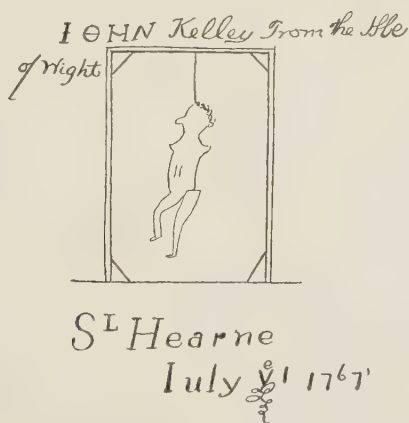 IOHN Kelley From the Isle
of Wight
SL Hearne
Iuly ye 1 1767